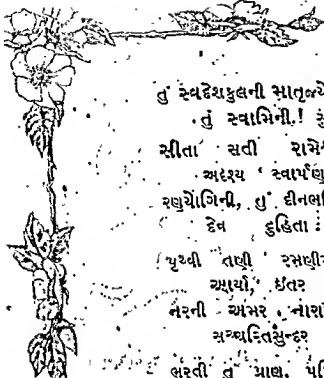 તું સ્વદેશકુલની માતૃજ્યો
તું સ્વામિની!
સીતા સતી
અદૃશ્ય સ્વાર્પણ
રણયોગિની, તું
દેવ દુહિતા
પૃથ્વી તણી રમણી
આર્યા, ઇતર
નરની અમર નારી
સચ્ચરિતસુન્દર
ભરતી તું પ્રાણ,